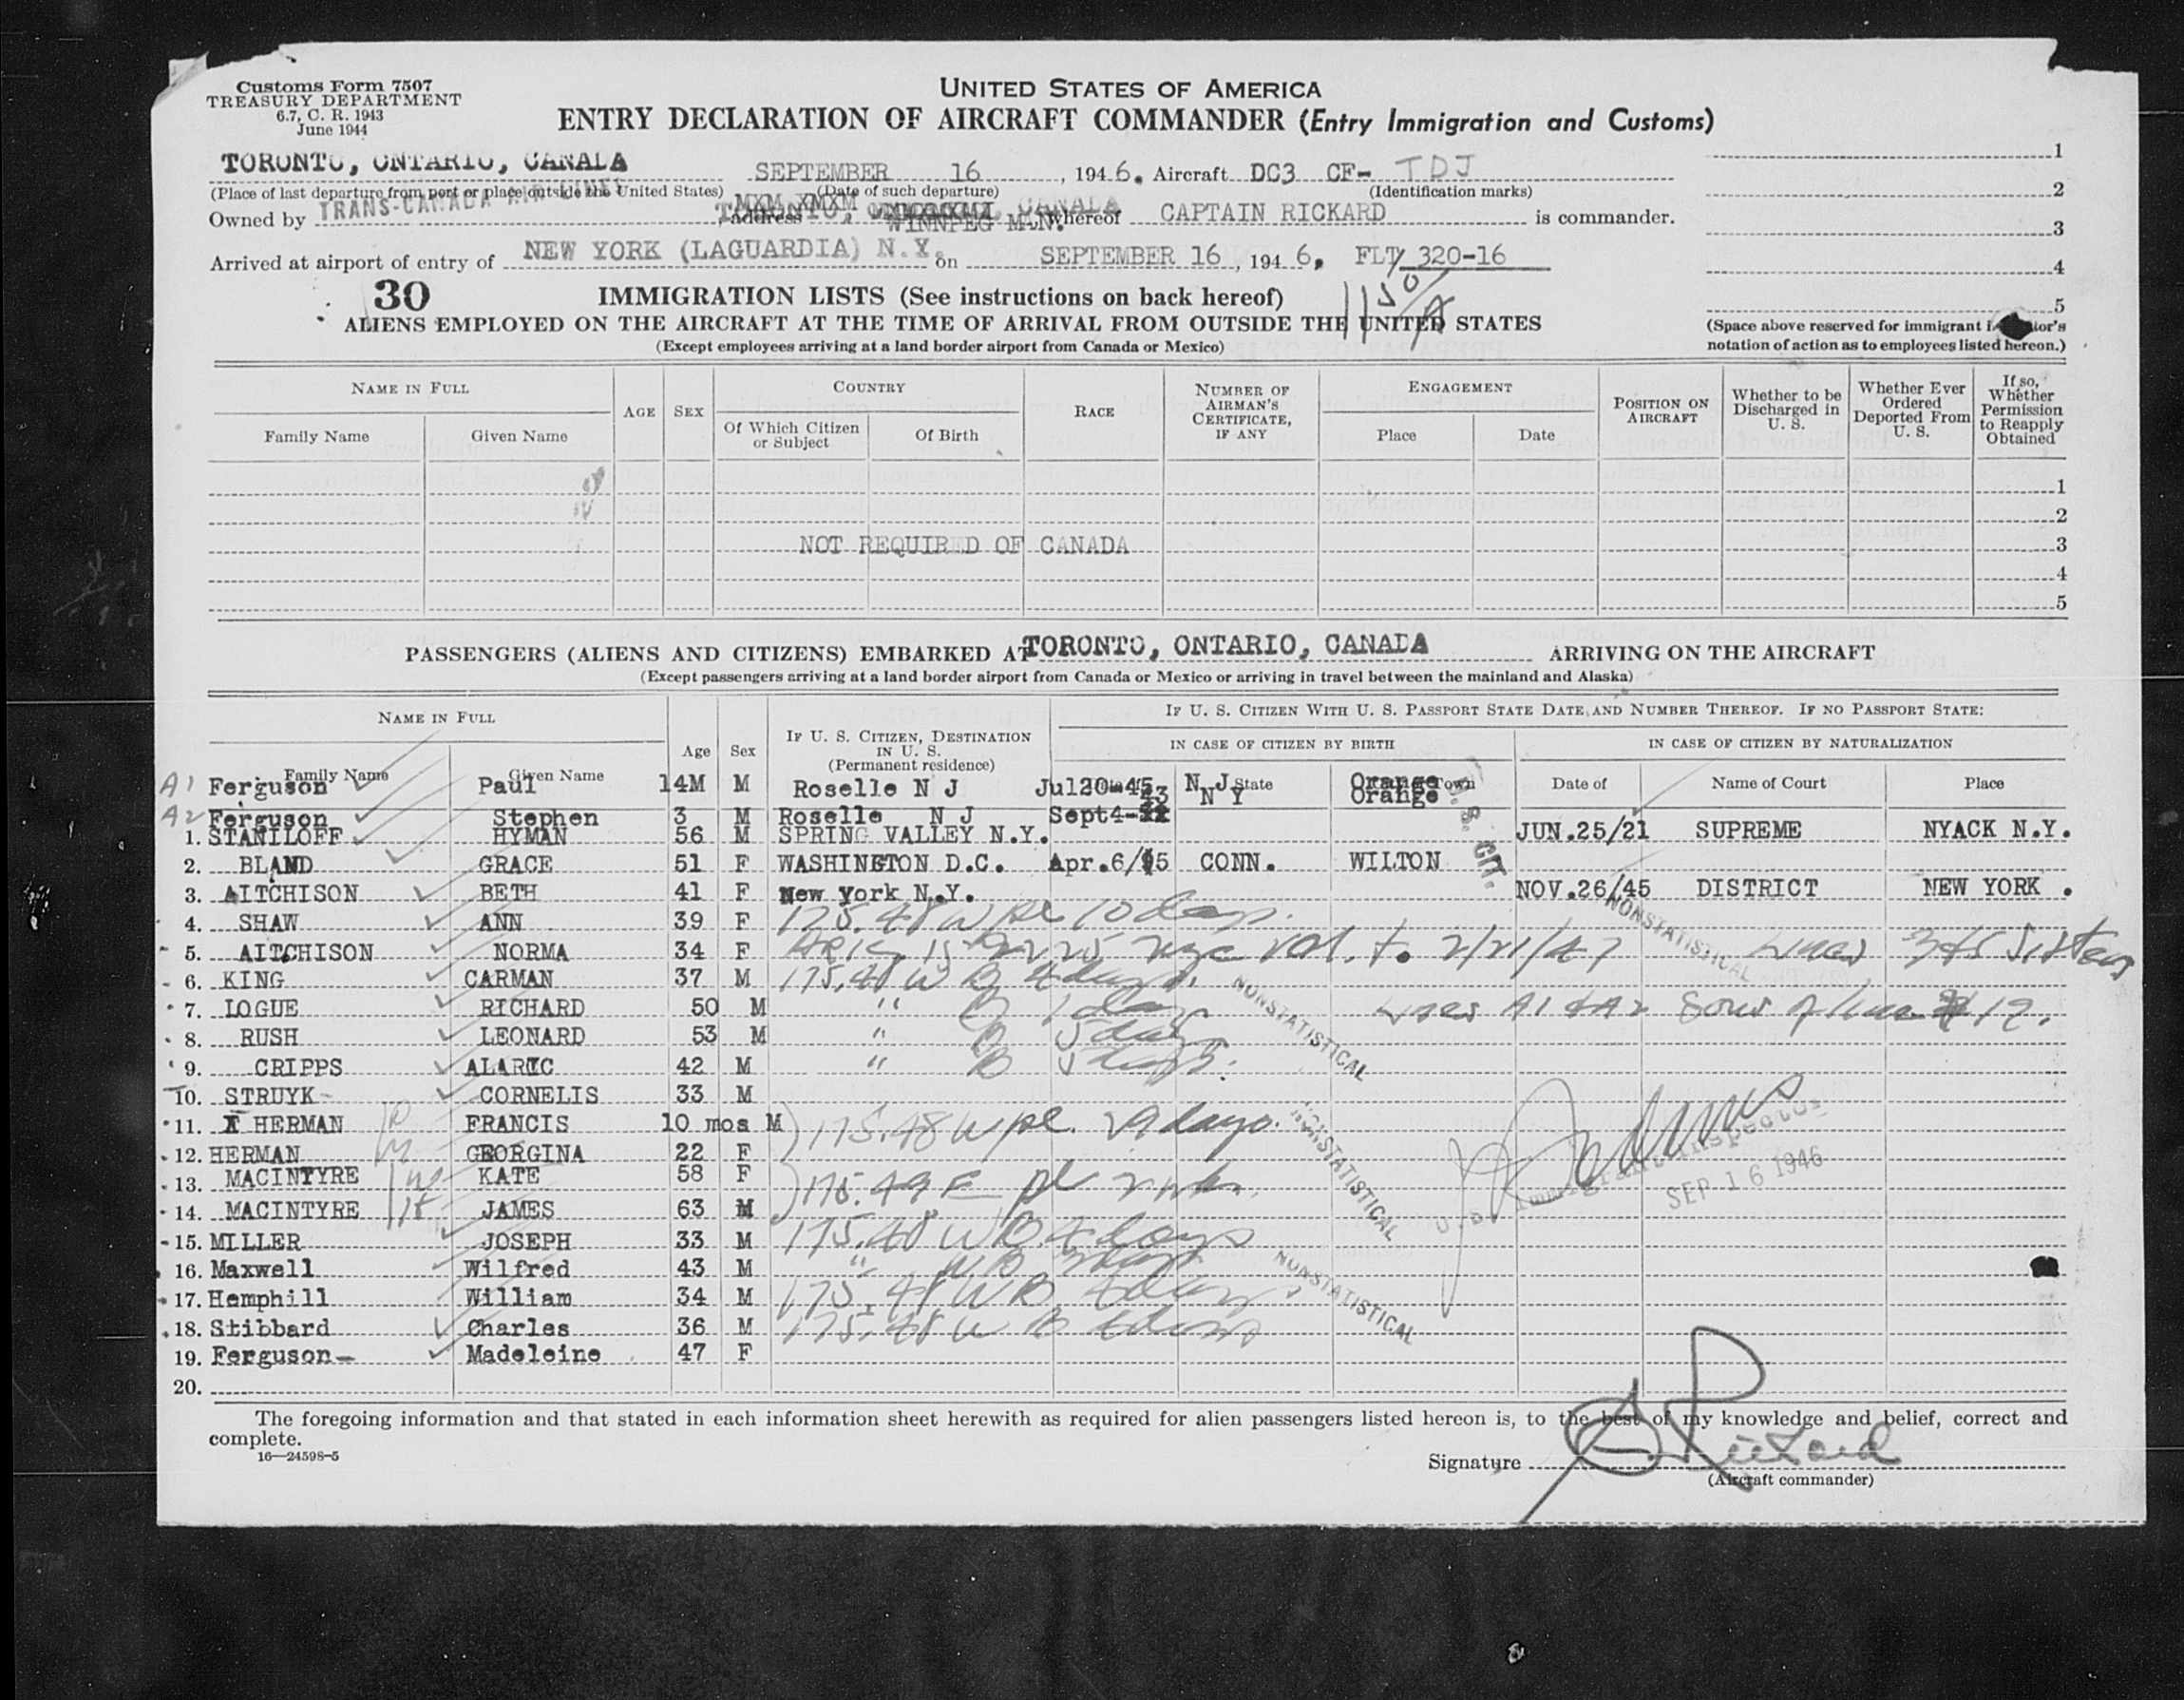 Customs Form 7507
TREASURY DEPARTMENT
6.7, C. R. 1943
June 1944
UNITED STATES OF AMERICA
ENTRY DECLARATION OF AIRCRAFT COMMANDER (Entry Immigration and Customs)
TORONTO, ONTARIO, CANADA SEPTEMBER 16, 1946. Aircraft DC3 CF- TDJ 1
(Place of last departure from port or place outside the United States) (Date of such departure) (Identification marks) 2
Owned by TRANS-CANADA AIR LINES, address WINNPEG MAN. whereof CAPTAIN RICKARD is commander.
3
Arrived at airport of entry of NEW YORK (LAGUARDIA) N.Y. on SEPTEMBER 16, 1946, FLT/ 320-16 4
30 IMMIGRATION LISTS (See instructions on back hereof) 1150/A 5
ALIENS EMPLOYED ON THE AIRCRAFT AT THE TIME OF ARRIVAL FROM OUTSIDE THE UNITED STATES
(Except employees arriving at a land border airport from Canada or Mexico)
(Space above reserved for immigrant inspector's
notation of action as to employees listed hereon.)
NAME IN FULL AGE SEX COUNTRY RACE NUMBER OF AIRMAN'S CERTIFICATE, IF ANY ENGAGEMENT POSITION ON AIRCRAFT Whether to be Discharged in U. S. Whether Ever Ordered Deported From U. S. If so, Whether Permission to Reapply Obtained
Family Name Given Name Of Which Citizen or Subject Of Birth Place Date
1
2
NOT REQUIRED OF CANADA 3
4
5
PASSENGERS (ALIENS AND CITIZENS) EMBARKED AT TORONTO, ONTARIO, CANADA ARRIVING ON THE AIRCRAFT
(Except passengers arriving at a land border airport from Canada or Mexico or arriving in travel between the mainland and Alaska)
NAME IN FULL Age Sex IF U. S. CITIZEN, DESTINATION IN U. S. (Permanent residence) IF U. S. CITIZEN WITH U. S. PASSPORT STATE DATE AND NUMBER THEREOF. IF NO PASSPORT STATE:
IN CASE OF CITIZEN BY BIRTH IN CASE OF CITIZEN BY NATURALIZATION
Family Name Given Name State Town Date of Name of Court Place
A1 Ferguson Paul 14M M Roselle N J Jul20-45 N J Orange
A2 Ferguson Stephen 3 M Roselle N J Sept4- N Y Orange
1. STANILOFF HYMAN 56 M SPRING VALLEY N.Y. JUN.25/21 SUPREME NYACK N.Y.
2. BLAND GRACE 51 F WASHINGTON D.C. Apr.6/ CONN. WILTON
U.S. CIT.
3. AITCHISON BETH 41 F New York N.Y. NOV.26/45 DISTRICT NEW YORK .
4. SHAW ANN 39 F 175.48 W pl 10 days.
NONSTATISTICAL
5. AITCHISON NORMA 34 F Lines 3 & 5 Sisters
6. KING CARMAN 37 M 175.48 W B 4 days.
NONSTATISTICAL
7. LOGUE RICHARD 50 M " B 1 day Lines A1 & A2 Sons of line # 19.
8. RUSH LEONARD 53 M " B 5 days
9. CRIPPS ALARIC 42 M " B 5 days.
10. STRUYK CORNELIS 33 M
11. X HERMAN FRANCIS 10 mos M 175.48 W pl. 29 days.
NONSTATISTICAL
12. HERMAN GEORGINA 22 F
13. MACINTYRE KATE 58 F
U.S. Immigrant Inspector
SEP 16 1946
14. MACINTYRE JAMES 63 M
15. MILLER JOSEPH 33 M 175.48 W B 4 days
16. Maxwell Wilfred 43 M " W B
NONSTATISTICAL
17. Hemphill William 34 M 175.48 W B
18. Stibbard Charles 36 M 175.48 W B
19. Ferguson- Madeleine 47 F
20.
The foregoing information and that stated in each information sheet herewith as required for alien passengers listed hereon is, to the best of my knowledge and belief, correct and
complete.
16—24598-5
Signature Rickard
(Aircraft commander)